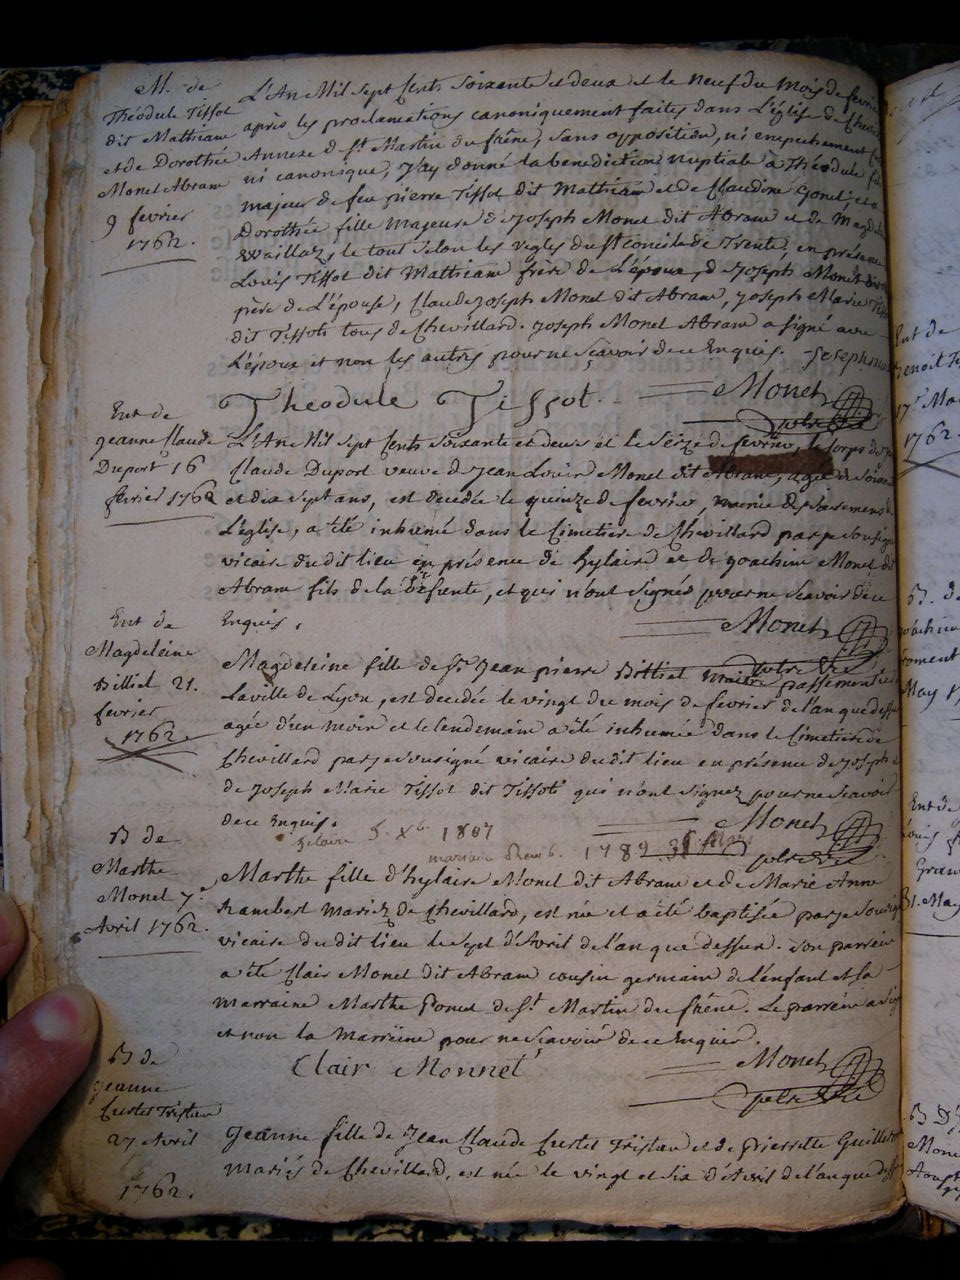 M. de
Théodule Tissot
dit Mathiam
et de Dorothée
Monet Abram
9 fevrier
1762.
L'An Mil sept Cents soixante et deux et le neuf du Mois de fevrier
après les proclamations canoniquement faites dans L'église de Chevi
Annexe de St. Martin du frêne, sans opposition, ni empechement
ni canonique, J'ay donné la benediction nuptiale à Théodule fils
majeur de feu pierre Tissot dit Mathiam et de Claudine Gonet, et a
Dorothée fille Majeure de Joseph Monet dit Abram et de Magd
Waillaz, le tout selon les regles du St concile de Trente en présence
Louis Tissot dit Mathiam frère de L'époux, de Joseph Monet
père de L'épouse, Claude Joseph Monet dit Abram, Joseph Marie Tiss
dit Tissoti tous de Chevillard. Joseph Monet Abram a signé avec
L'époux et non les autres pour ne Scavoir de ce Enquis. Joseph mo
Theodule Tissot. Monet
Ent de
Jeanne Claude
Duport 16
fevrier 1762
L'An Mil sept Cents soixante et deux et le Seize de fevrier, le Corps de
Claude Duport veuve de Jean Louis Monet dit Abram, agée de soixan
et dix sept ans, est decedée le quinze de fevrier, munie des sacremens de
L'église, a été inhumé dans le Cimetiere de Chevillard par je soussign
vicaire dudit lieu en présence de hylaire et de Joachim Monet dit
Abram fils de la défunte, et qui n'ont signés pour ne Scavoir de ce
Enquis.
Monet
Ent de
Magdeleine
Billiet 21.
fevrier
1762.
Magdeleine fille de Sr. Jean pierre Billiet passementier
La ville de Lyon, est decedée le vingt du mois de fevrier de l'an que dessu
agée d'un mois et le lendemain a été inhumée dans le Cimetiere de
Chevillard par je soussigné vicaire dudit lieu en présence de Joseph et
de Joseph Marie Tissot dit Tissoti qui n'ont signez pour ne Scavoir
de ce Enquis.
Monet
5. Xb. 1807
1789
B de
Marthe
Monet 7e
Avril 1762.
Marthe fille d'hylaire Monet dit Abram et de Marie Anne
Rambert Mariez de Chevillard, est née et a été baptisée par je soussig
vicaire dudit lieu le sept d'Avril de l'an que dessus. Son parrein
a été Clair Monet dit Abram cousin germain de l'enfant et sa
marraine Marthe Ponet de St. Martin du frêne. Le parrein a sig
et non la Marreine pour ne Scavoir de ce Enquis.
Clair Monnet
Monet
B de
Jeanne
Curtet Tristan
27 Avril
1762.
Jeanne fille de Jean Claude Curtet Tristan et de Pierrette Guillet
Mariés de Chevillard, est née le vingt et six d'Avril de l'an que dess
Ent de
Benoit
1762.
B. de
May
Ent de
31. May
B D'